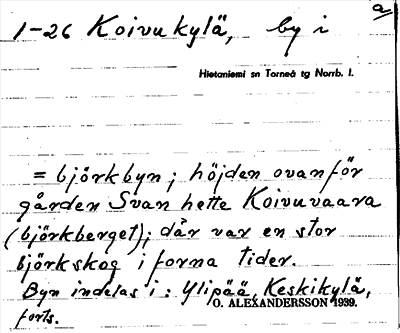 a
1-26 Koivukylä, by i
Hietaniemi sn Torneå tg Norrb. l.
= björkbyn; höjden ovanför
gården Svan hette Koivuvaara
(björkberget); där var en stor
björkskog i forna tider.
Byn indelas i: Ylipää, Keskikylä,
forts. O. ALEXANDERSSON 1939.